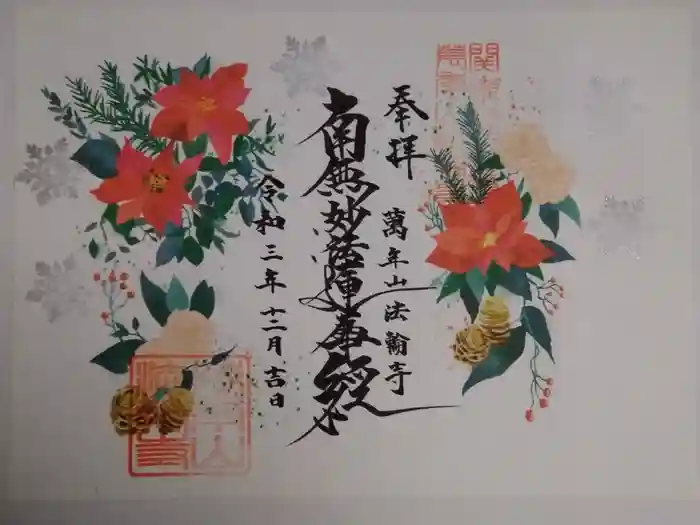 奉拝
萬年山法輪寺
南無妙法蓮華経
令和三年十二月吉日